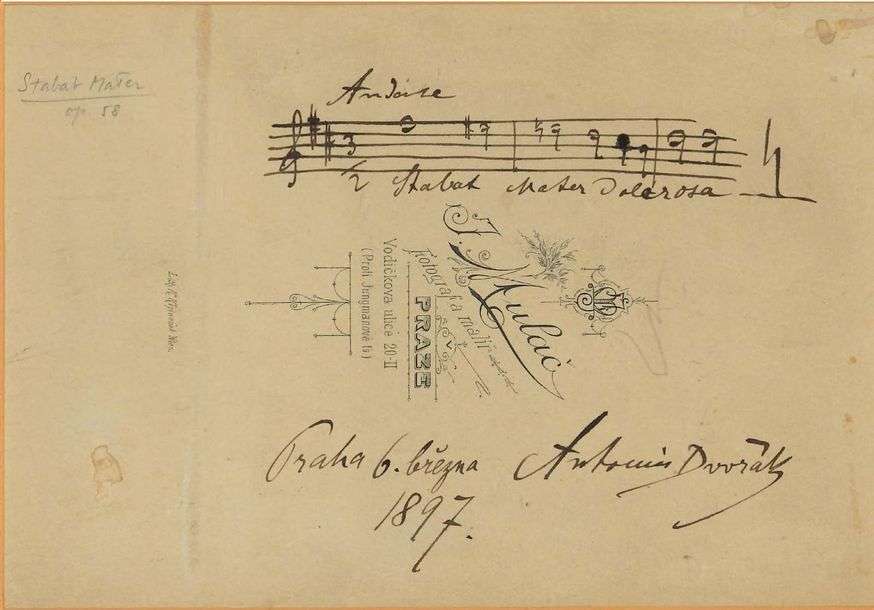 Stabat Mater
op. 58
Andante
3
/2 Stabat Mater Dolorosa
J. Mulač
fotograf a malíř
v PRAZE
Vodičkova ulice 20-II
(Proti Jungmanově tř.)
Praha 6. března
1897.
Antonín Dvořák